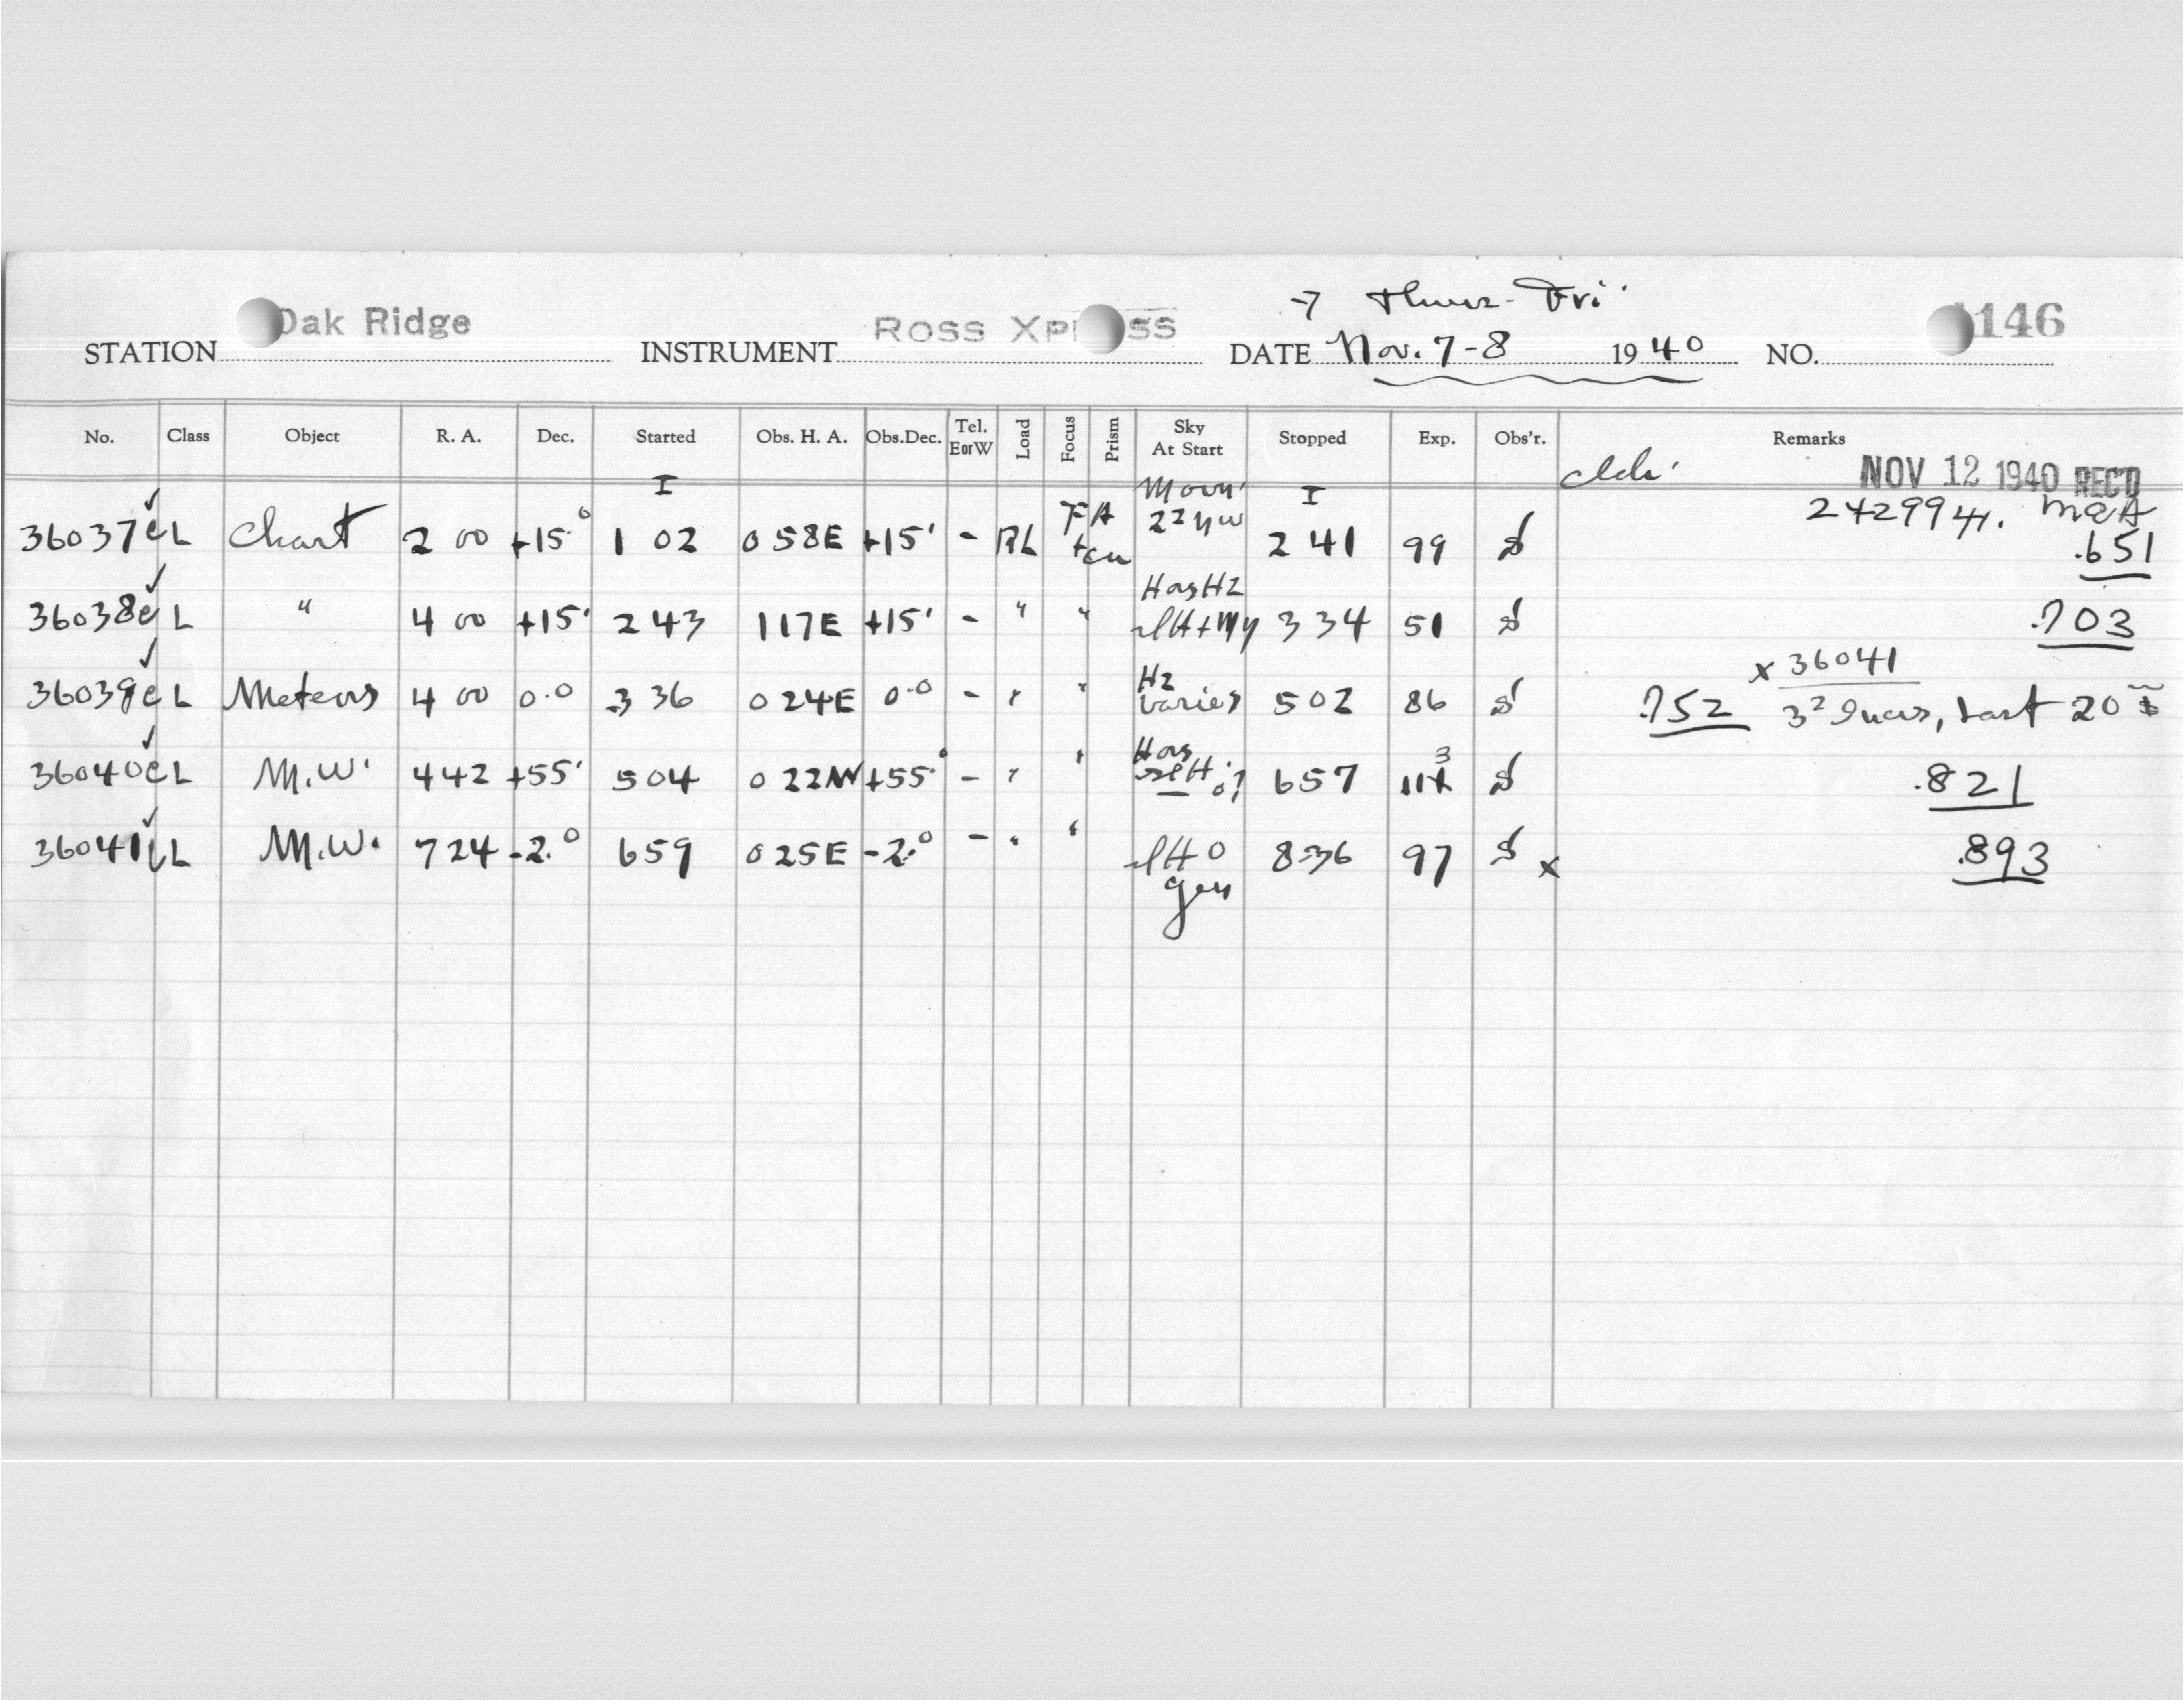 → Thurs-Fri.
STATION Oak Ridge INSTRUMENT ROSS XPRESS DATE Nov. 7-8 1940 NO. 146
No. Class Object R. A. Dec. Started Obs. H. A. Obs.Dec. Tel. EorW Load Focus Prism Sky At Start Stopped Exp. Obs'r. Remarks
I Moon I NOV 12 1940 REC'D
36037 c L Chart 2 00 +15° 1 02 0 58E +15° - RL FA 22 2 41 99 2429941. .651
36038 c L " 4 00 +15° 2 43 1 17E +15° - " " 3 34 51 .703
36039 c L Meteors 4 00 0.0 3 36 0 24E 0.0 - " " Hz varies 5 02 86 .752 x 36041
36040 c L M.W. 4 42 +55° 5 04 0 22W +55° - " " 6 57 113 .821
36041 c L M.W. 7 24 -2.° 6 59 0 25E -2.° - " " 8 36 97 x .893